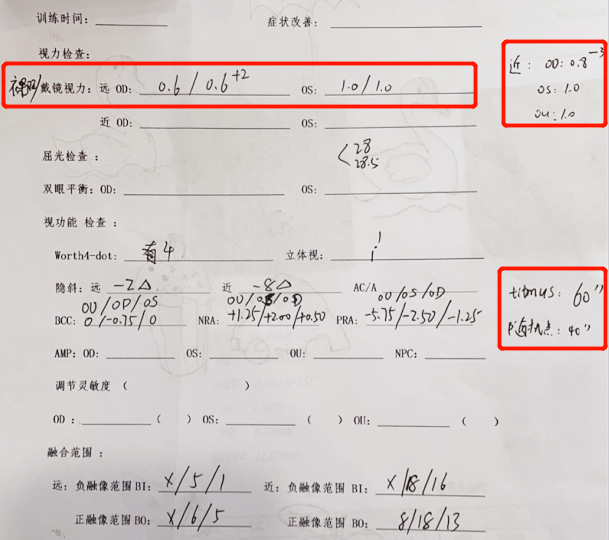 训练时间: 症状改善:
视力检查:
裸眼/戴镜视力: 远 OD: 0.6 / 0.6⁺² OS: 1.0 / 1.0
近: OD: 0.8⁻³
OS: 1.0
OU: 1.0
近 OD: OS:
屈光检查: < 28
28.5
双眼平衡: OD: OS:
视功能 检查:
Worth4-dot: 看4 立体视:
隐斜: 远 -2△ 近 -8△ AC/A
OU/OD/OS OU/OS/OD OU/OS/OD
BCC: 0/-0.75/0 NRA: +1.25/+2.00/+0.50 PRA: -5.75/-2.50/-1.25
titmus: 60"
随机点: 40"
AMP: OD: OS: OU: NPC:
调节灵敏度 ( )
OD: ( ) OS: ( ) OU: ( )
融合范围:
远: 负融像范围 BI: x/5/1 近: 负融像范围 BI: x/18/16
正融像范围 BO: x/6/5 正融像范围 BO: 8/18/13